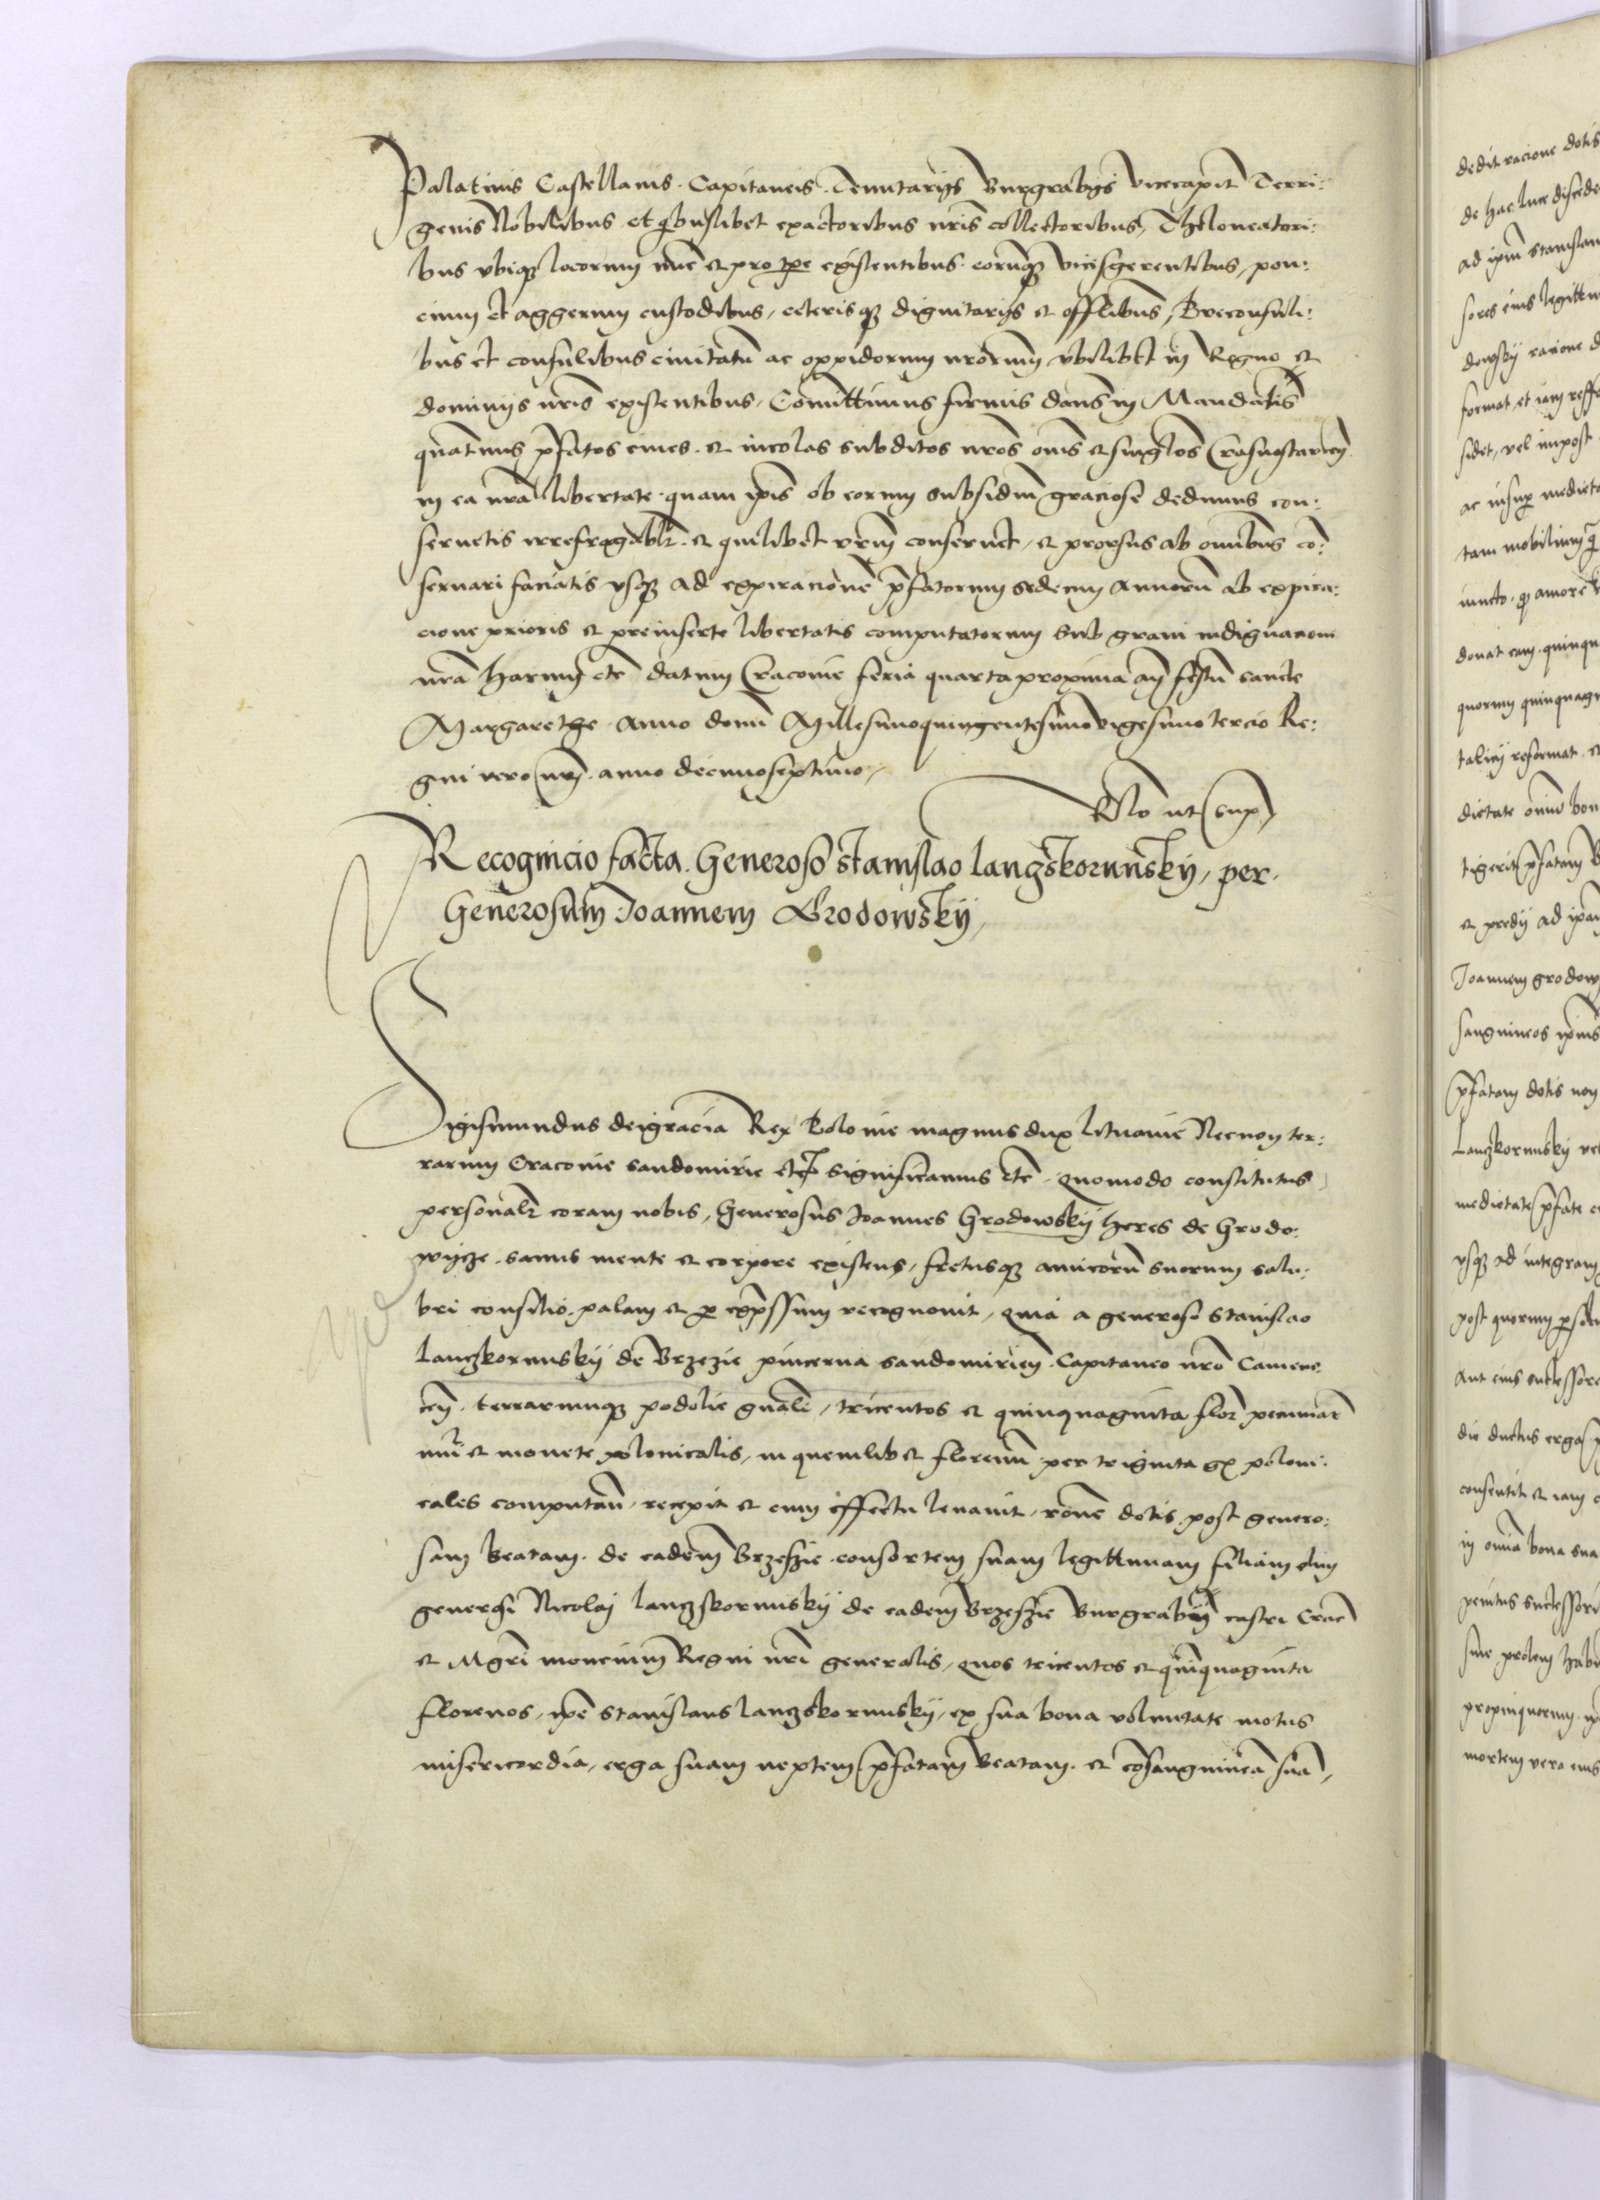 Palatinis Castellanis Capitaneis Tenutarijs Burgrabijs vicecapit Terri:
genis Nobilibus et qbuslibet exactoribus nris collectoribus, Theloneatori:
bus vbiq locorum nunc et pro tpe existentibus eorumq vicesgerentibus, pon:
cium et aggerum custodibus, ceterisq dignitarijs et offlibus, Preconsuli:
bus et consulibus ciuitatu ac oppidorum nrorum vbilibet in Regno et
dominijs nris existentibus, Comittimus firmis dans in Mandatis
quatinus pfatos ciues et incolas subditos nros ois et singlos Crasnostawien
in ea nra libertate quam ipis ob eorum subsidiu graciose dedimus con:
seruetis irrefragablr et quilibet vrm conseruet, et prorsus ab omibus co:
seruari faciatis vsq ad expiracione pfatorum sedecim annoru ab expira:
cione prioris et preinserte libertatis computatorum Sub graui indignacioni
nra harum etc datum Cracouie feria quarta proxima an festu sancte
Margarethe Anno domi Millesimoquingentesimovigesimo tercio Re:
gni vero nri anno decimoseptimo,
Rlo ut sup
Recognicio facta Generoso Stanislao Langskorunsky, per
Generosum Joannem Grodowsky,
Sigismundus deigracia Rex Polonie magnus dux Lituanie Necnon ter:
rarum Cracouie sandomirie etc significamus etc quomodo constitutus
personalr coram nobis, Generosus Joannes Grodowsky heres de Grodo:
wycze sanus mente et corpore existens, fretusq amicoru suorum salu:
bri consilio, palam et p expssum recognouit, quia a generoso Stanislao
Lanczkorunsky de Brzezie pincerna sandomirien Capitaneo nro Camene:
cen terrarumq podolie gnali, tricentos et quinquaginta flor pecuniar
nui et monete polonicalis, in quemlibet florenu per triginta gr poloni:
cales computan, recepit et cum effectu leuauit, rone dotis post genero:
sam Beatam de eadem Brzeszie consortem suam legittimam filiam olim
generosi Nicolaj Lanczskorunsky de eadem Brzeszie Burgrabij castri Crac
et Mgri moneium Regni nri generalis, quos tricentos et quinquaginta
florenos, ipe Stanislaus Lanczskorunsky, ex sua bona voluntate motus
misericordia, erga suam neptem pfatam Beatam et cosanguinea sua,
dedit racione dotis
de hac luce discede
ad ipm Stanislau
sores eius legittim
dowsky racione d
format et iam reffo
sidet, vel impost
ac insup medieta
tam mobilium q
iuncto p amore
donat eam quinqu
quorum quinquag
talem reformat et
dietate omiu bon
tigerit pfatam B
et predij ad ipam
Joannem grodow
sanguineos ipius
pfatam dotis non
Lanczkorunsky ve
medietate pfate
vsq ad integram
post quorum psol
Aut eius successore
die ductus erga
consentit et iam
in omia bona sua
penitus successori
sine prolem habu
propinquorum
mortem vero eius